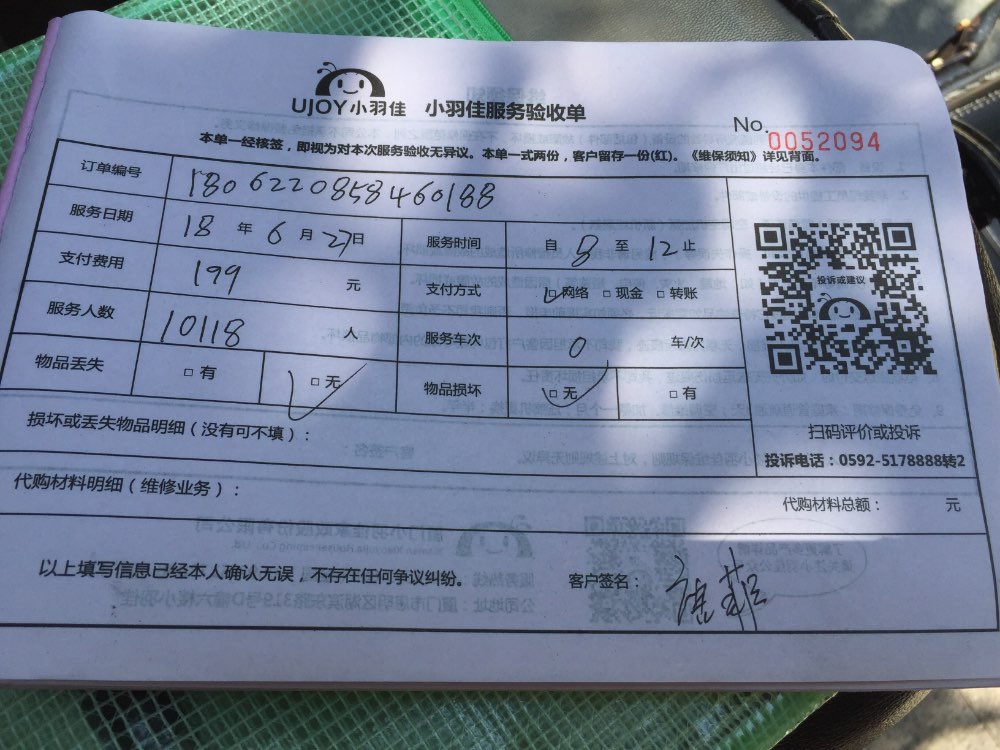 UJOY小羽佳 小羽佳服务验收单
No.0052094
本单一经核签，即视为对本次服务验收无异议。本单一式两份，客户留存一份(红)。《维保须知》详见背面。
订单编号 180622085846 0188
服务日期 18 年 6 月 27 日 服务时间 自 8 至 12 止
支付费用 199 元 支付方式 □网络 □现金 □转账
服务人数 10118 人 服务车次 0 车/次
物品丢失 □有 □无 物品损坏 □无 □有
投诉或建议
扫码评价或投诉
投诉电话：0592-5178888转2
损坏或丢失物品明细（没有可不填）：
代购材料明细（维修业务）： 代购材料总额： 元
以上填写信息已经本人确认无误，不存在任何争议纠纷。 客户签名：